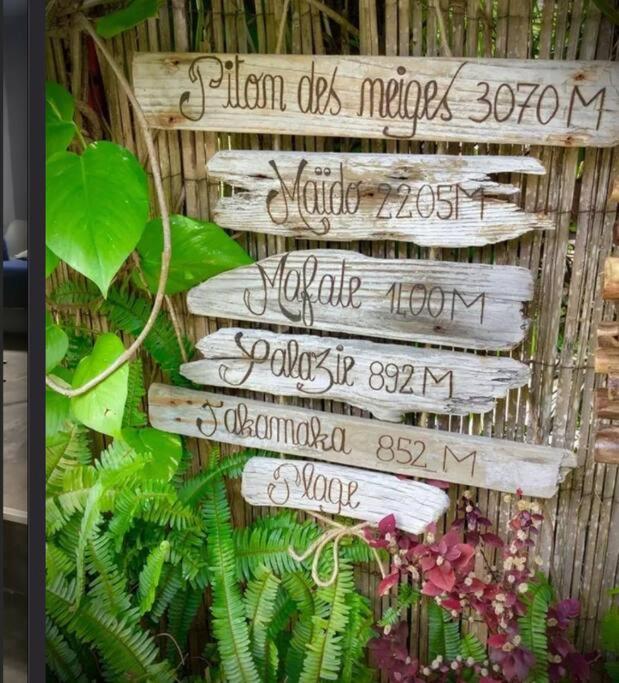 Pitom des neiges 3070 M
Maïdo 2205M
Mafate 1400M
Salazie 892 M
Takamaka 852 M
Plage